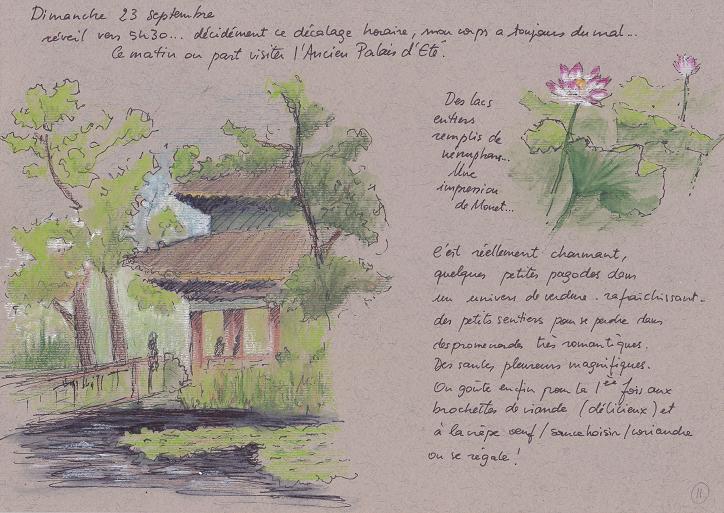 Dimanche 23 septembre
réveil vers 5h30... décidément ce décalage horaire, mon corps a toujours du mal...
Ce matin on part visiter l'Ancien Palais d'Eté.
Des lacs
entiers
remplis de
nénuphars...
Une
impression
de Monet...
C'est réellement charmant,
quelques petites pagodes dans
un univers de verdure rafraîchissant.
des petits sentiers pour se perdre dans
des promenades très romantiques.
Des saules pleureurs magnifiques.
On goûte enfin pour la 1ère fois aux
brochettes de viande (délicieux) et
à la crêpe oeuf/sauce hoisin/coriandre
on se régale !
11